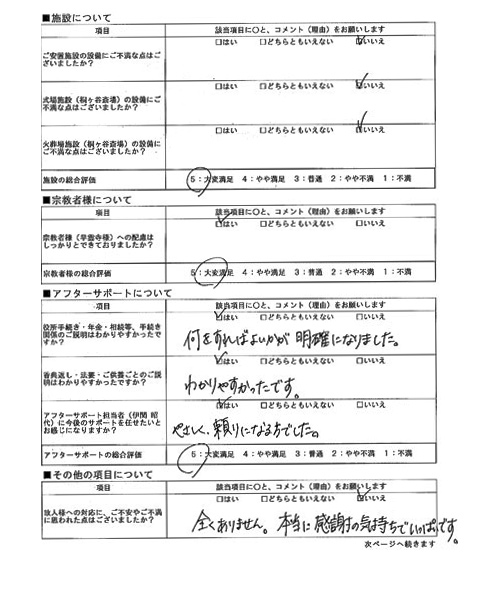 ■施設について
項目 該当項目に○と、コメント（理由）をお願いします
ご安置施設の設備にご不満な点はございましたか？
□はい □どちらともいえない ☑いいえ
式場施設（桐ヶ谷斎場）の設備にご不満な点はございましたか？
□はい □どちらともいえない ☑いいえ
火葬場施設（桐ヶ谷斎場）の設備にご不満な点はございましたか？
□はい □どちらともいえない ☑いいえ
施設の総合評価 5：大変満足 4：やや満足 3：普通 2：やや不満 1：不満
■宗教者様について
項目 該当項目に○と、コメント（理由）をお願いします
宗教者様（早雲寺様）への配慮はしっかりとできておりましたか？
☑はい □どちらともいえない □いいえ
宗教者様の総合評価 5：大変満足 4：やや満足 3：普通 2：やや不満 1：不満
■アフターサポートについて
項目 該当項目に○と、コメント（理由）をお願いします
役所手続き・年金・相続等、手続き関係のご説明はわかりやすかったですか？
☑はい □どちらともいえない □いいえ
何をすればよいかが 明確になりました。
香典返し・法要・ご供養ごとのご説明はわかりやすかったですか？
☑はい □どちらともいえない □いいえ
わかりやすかったです。
アフターサポート担当者（伊関 昭代）に今後のサポートを任せたいとお感じになりますか？
☑はい □どちらともいえない □いいえ
やさしく、頼りになる方でした。
アフターサポートの総合評価 5：大変満足 4：やや満足 3：普通 2：やや不満 1：不満
■その他の項目について
項目 該当項目に○と、コメント（理由）をお願いします
故人様への対応に、ご不安やご不満に思われた点はございましたか？
□はい □どちらともいえない ☑いいえ
全くありません。本当に感謝の気持ちでいっぱいです。
次ページへ続きます